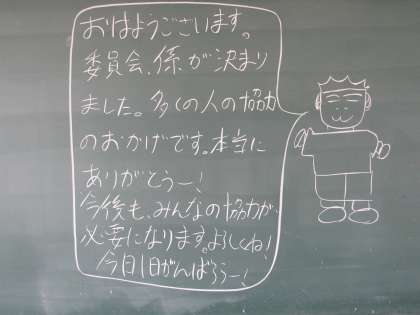 おはようございます。
委員会、係が決まり
ました。多くの人の協力
のおかげです。本当に
ありがとうー！
今後も、みんなの協力が
必要になります。よろしくね！
今日1日がんばろうー！